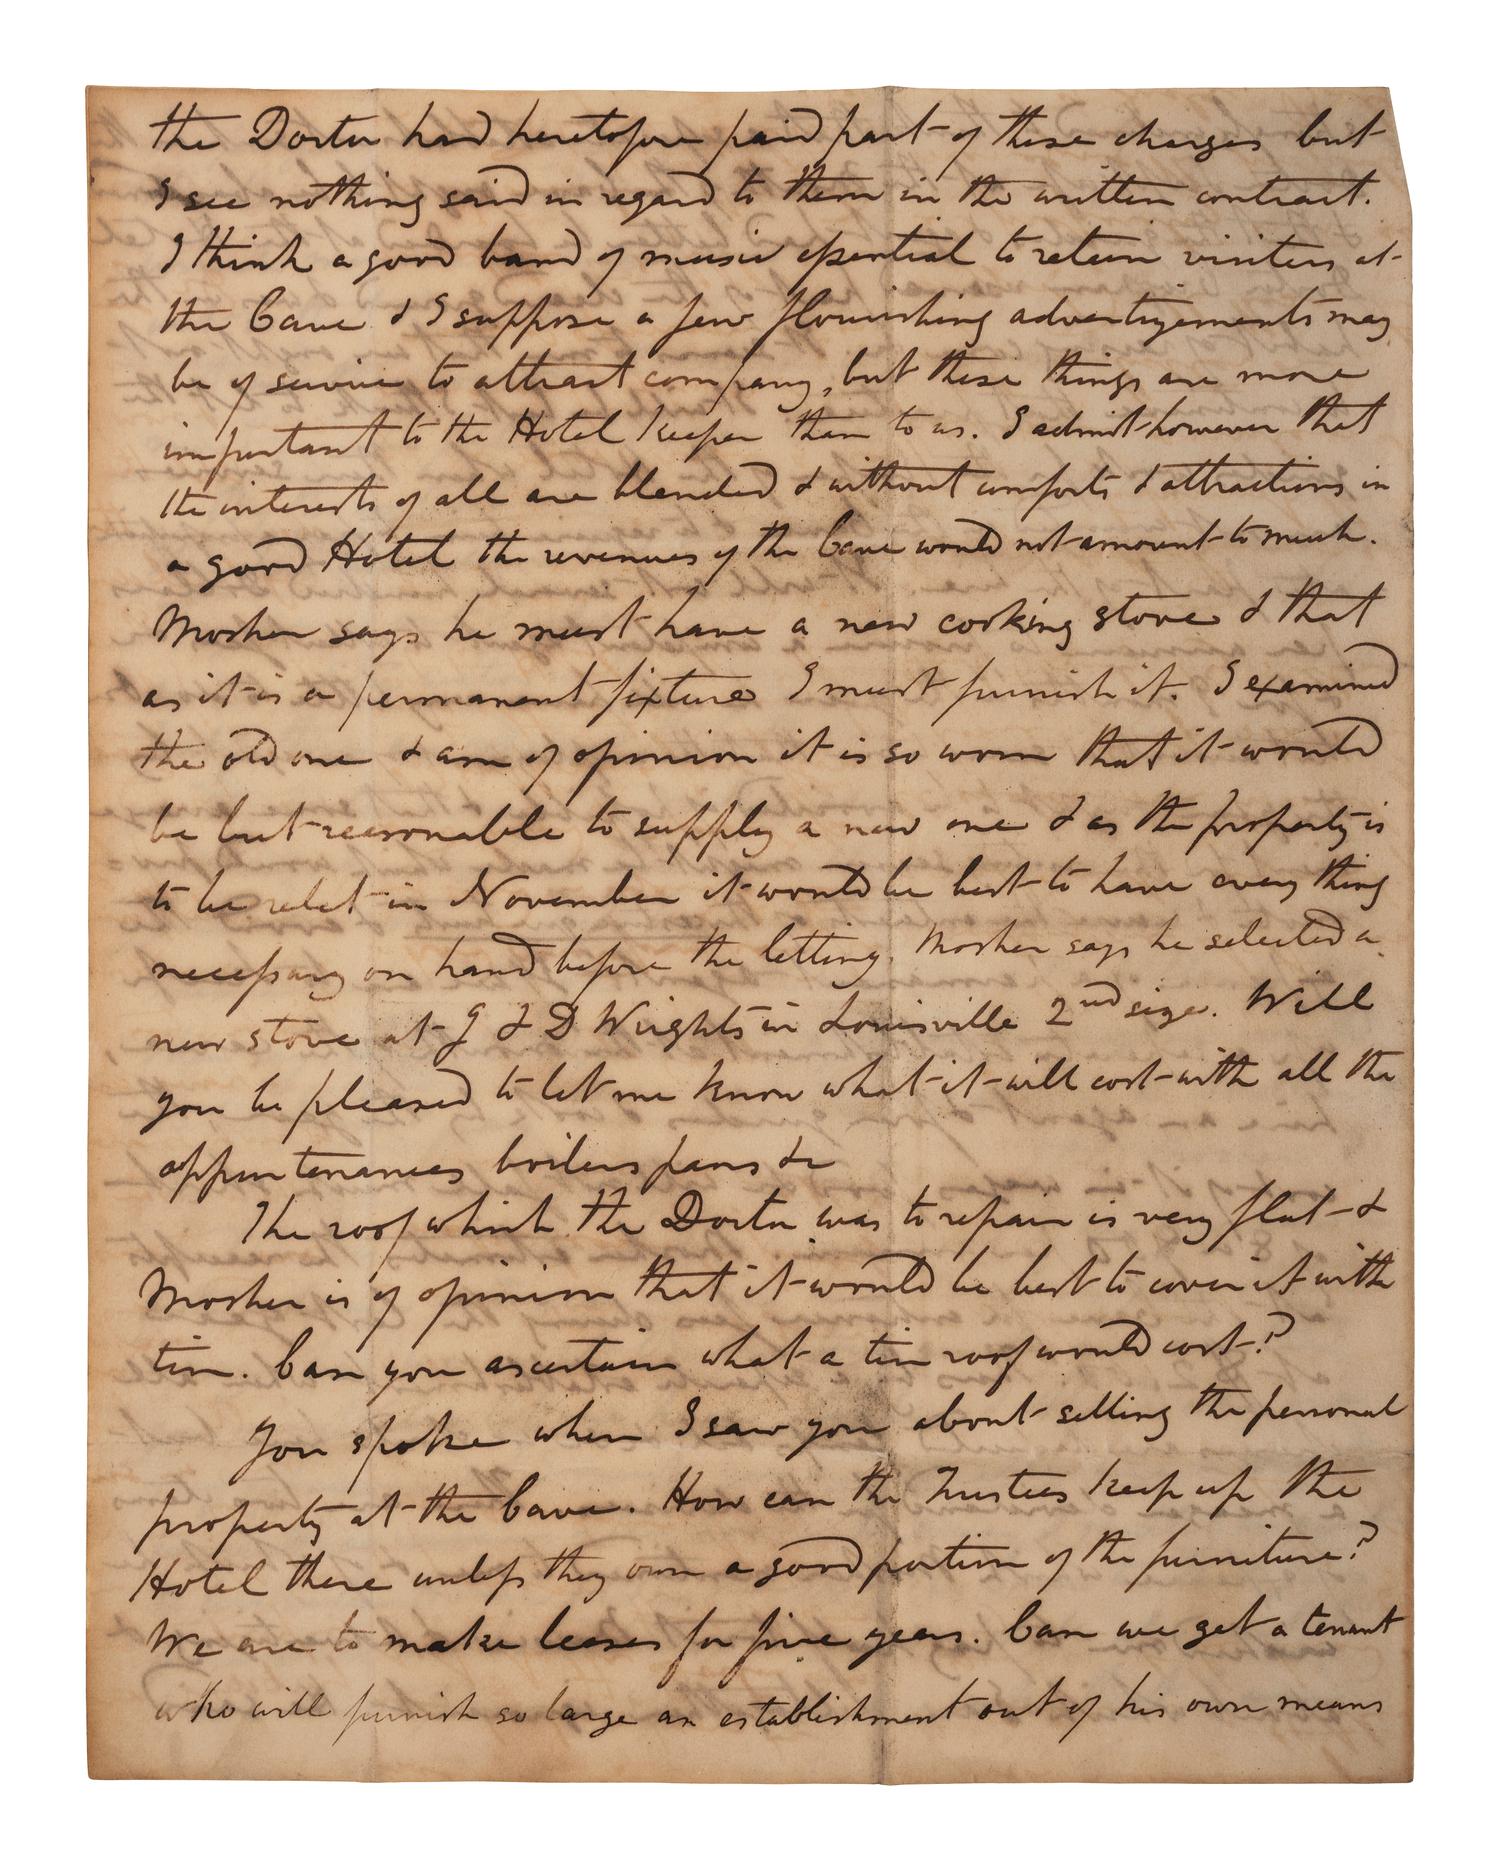 the Doctor had heretofore paid part of these charges but
I see nothing said in regard to them in the written contract.
I think a good band of music essential to retain visiters at
the Cave & I suppose a few flourishing advertizements may
be of service to attract company, but these things are more
important to the Hotel keeper than to us. I admit however that
the interests of all are blended & without comforts & attractions in
a good Hotel the revenues of the Cave would not amount to much.
Mosher says he must have a new cooking stove & that
as it is a permanent fixture I must furnish it. I examined
the old one & am of opinion it is so worn that it would
be but reasonable to supply a new one & as the property is
to be relet in November it would be best to have every thing
necessary on hand before the letting. Mosher says he selected a
new stove at J & D Wrights in Louisville 2nd size. Will
you be pleased to let me know what it will cost with all the
appurtenances boilers pans &c
The roof which the Doctor was to repair is very flat &
Mosher is of opinion that it would be best to cover it with
tin. Can you ascertain what a tin roof would cost?
You spoke when I saw you about selling the personal
property at the Cave. How can the Trustees keep up the
Hotel there unless they own a good portion of the furniture?
We are to make leases for five years. Can we get a tenant
who will furnish so large an establishment out of his own means